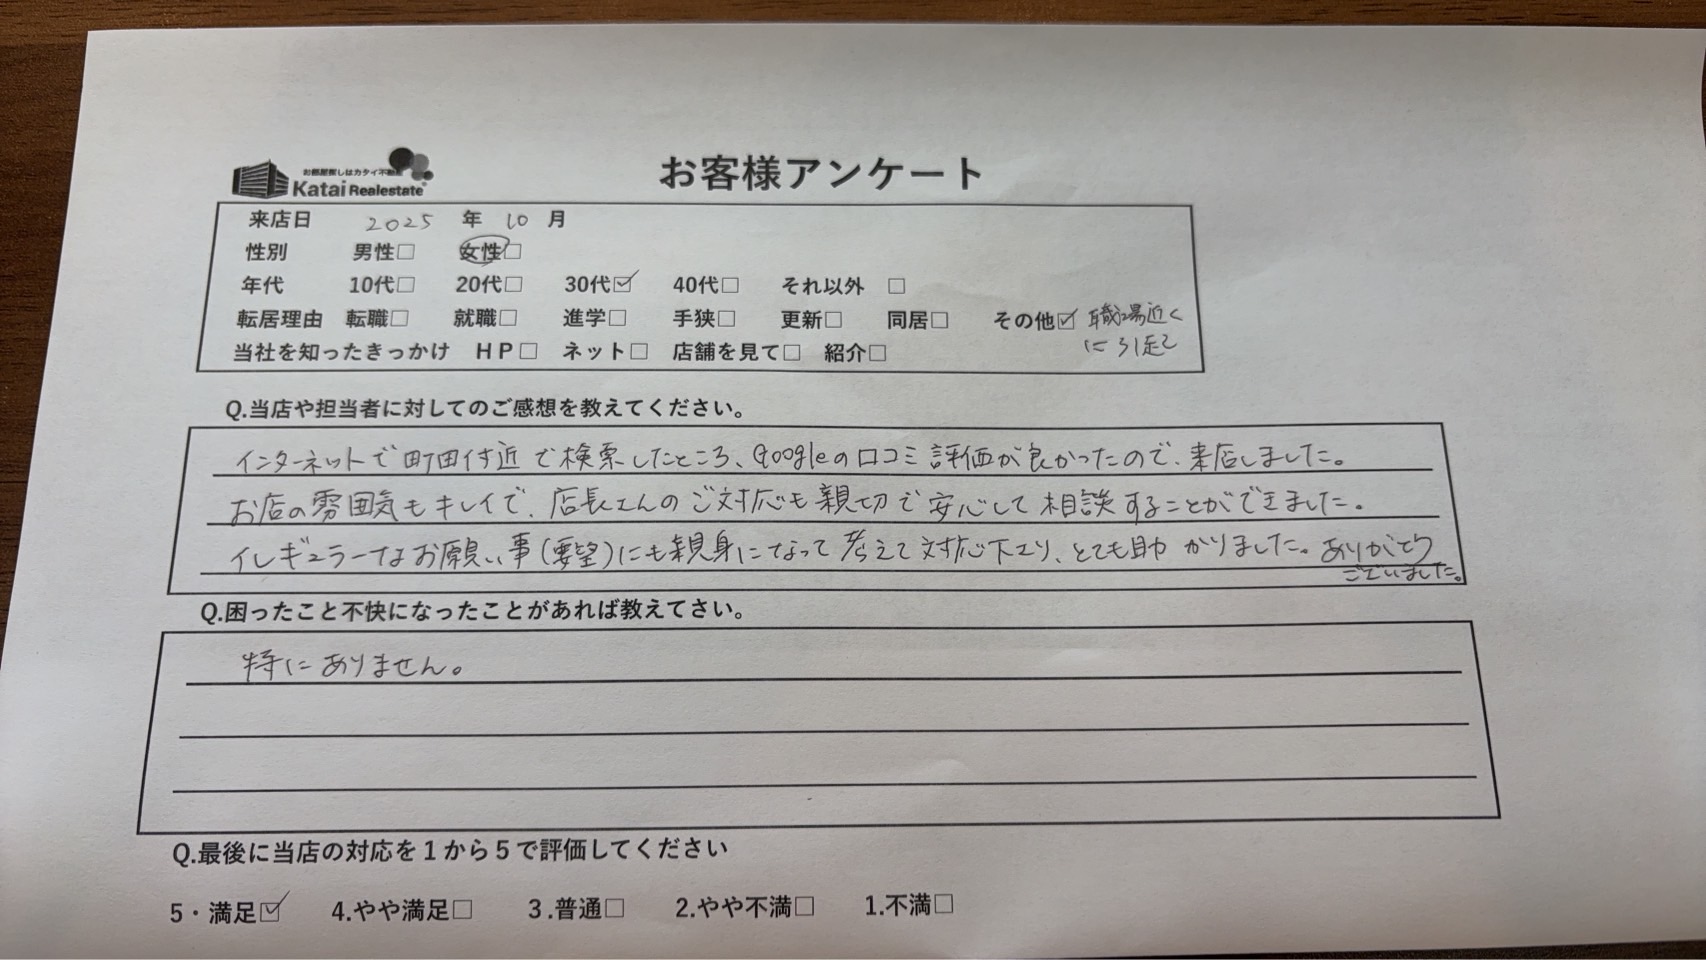 お部屋探しはカタイ不動産
Katai Realestate
お客様アンケート
来店日 2025 年 10 月
性別 男性□ 女性□
年代 10代□ 20代□ 30代☑ 40代□ それ以外 □
転居理由 転職□ 就職□ 進学□ 手狭□ 更新□ 同居□ その他☑ 職場近く
に引越し
当社を知ったきっかけ HP□ ネット□ 店舗を見て□ 紹介□
Q.当店や担当者に対してのご感想を教えてください。
インターネットで町田付近で検索したところ、Googleの口コミ評価が良かったので、来店しました。
お店の雰囲気もキレイで、店長さんのご対応も親切で安心して相談することができました。
イレギュラーなお願い事(要望)にも親身になって考えて対応下さり、とても助かりました。ありがとう
ございました。
Q.困ったこと不快になったことがあれば教えてさい。
特にありません。
Q.最後に当店の対応を1から5で評価してください
5・満足☑ 4.やや満足□ 3.普通□ 2.やや不満□ 1.不満□